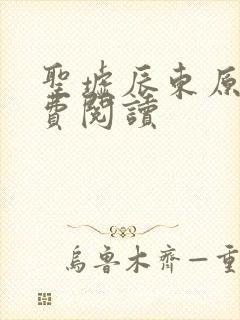 聖墟辰東原
費閱讀
烏魯木齊一重